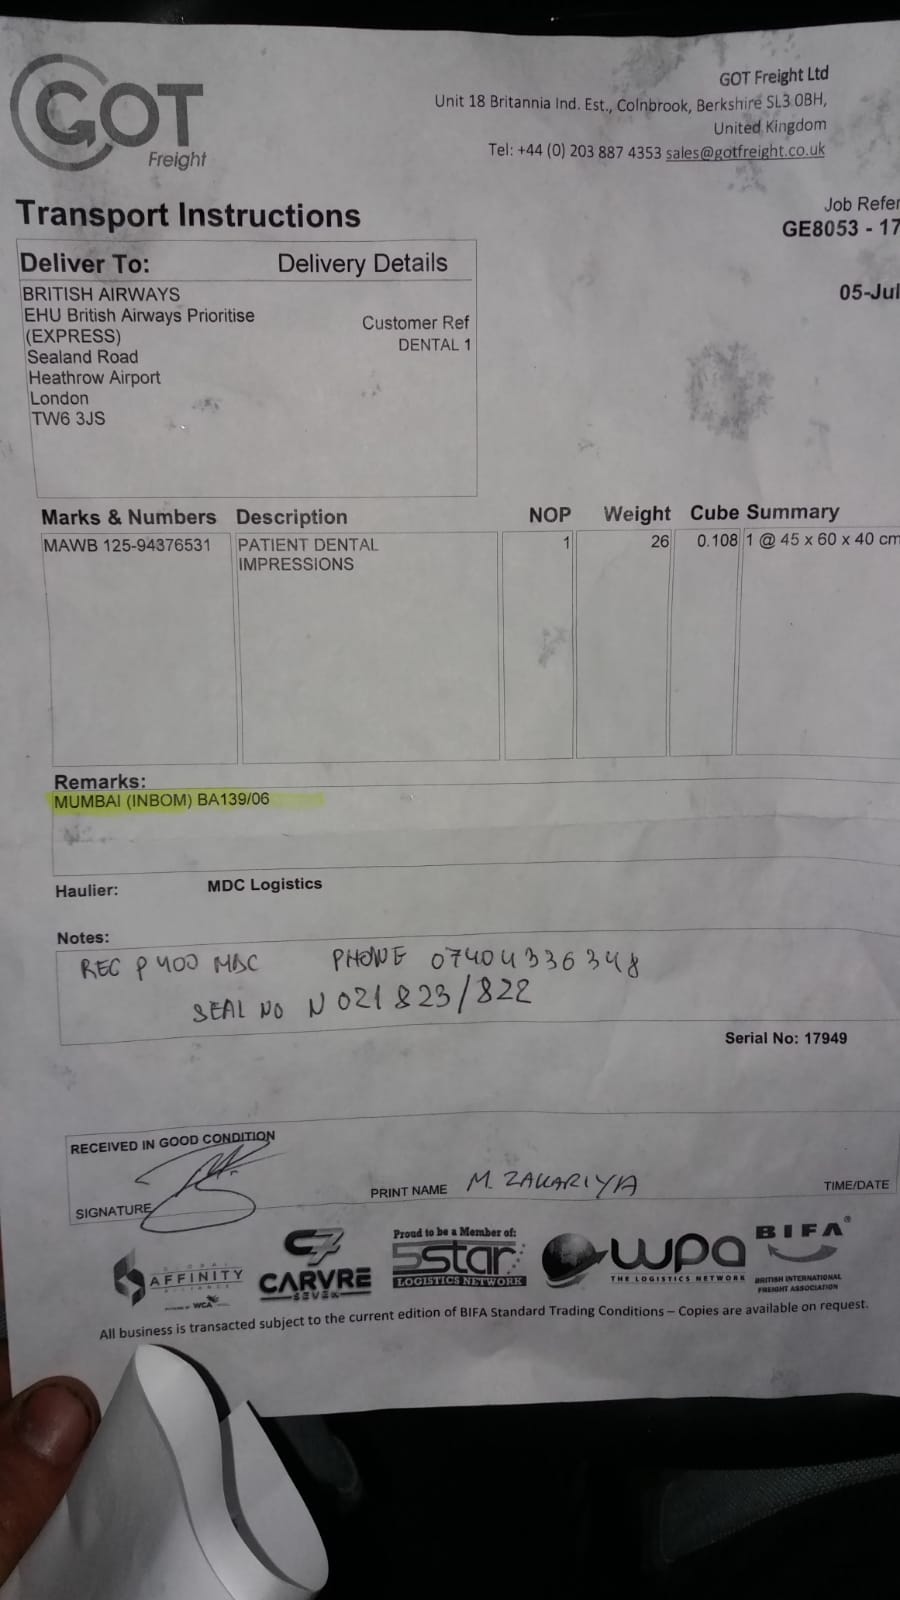 GOT
Freight
GOT Freight Ltd
Unit 18 Britannia Ind. Est., Colnbrook, Berkshire SL3 0BH,
United Kingdom
Tel: +44 (0) 203 887 4353 sales@gotfreight.co.uk
Transport Instructions
Job Refer
GE8053 - 17
05-Jul
Deliver To: Delivery Details
BRITISH AIRWAYS
EHU British Airways Prioritise
(EXPRESS)
Sealand Road
Heathrow Airport
London
TW6 3JS
Customer Ref
DENTAL 1
Marks & Numbers Description NOP Weight Cube Summary
MAWB 125-94376531 PATIENT DENTAL 1 26 0.108 1 @ 45 x 60 x 40 cm
IMPRESSIONS
Remarks:
MUMBAI (INBOM) BA139/06
Haulier: MDC Logistics
Notes:
REC P400 MDC PHONE 07404336348
SEAL NO N021823/822
Serial No: 17949
RECEIVED IN GOOD CONDITION
SIGNATURE PRINT NAME M. ZAKARIYA TIME/DATE
AFFINITY
WCA
C7
CARVRE
SEVEN
Proud to be a Member of:
5star
LOGISTICS NETWORK
wpa
THE LOGISTICS NETWORK
BIFA®
BRITISH INTERNATIONAL
FREIGHT ASSOCIATION
All business is transacted subject to the current edition of BIFA Standard Trading Conditions – Copies are available on request.